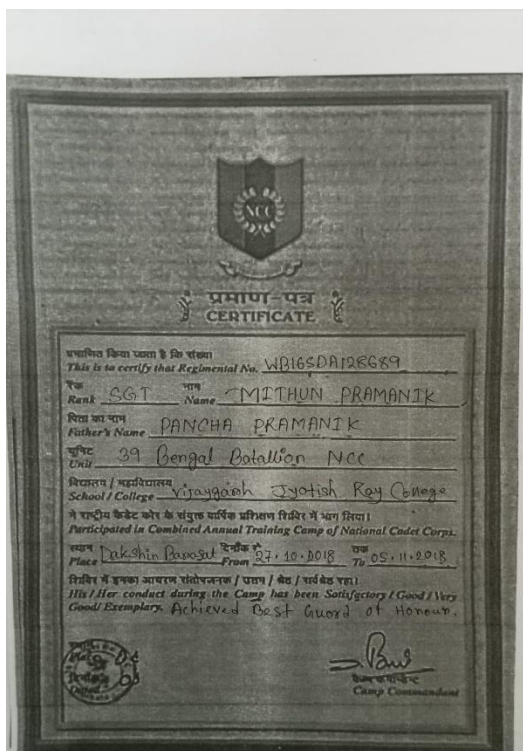 NCC
प्रमाण-पत्र
CERTIFICATE
प्रमाणित किया जाता है कि संख्या
This is to certify that Regimental No. WB16SDA128689
रैंक नाम
Rank SGT Name MITHUN PRAMANIK
पिता का नाम
Father's Name PANCHA PRAMANIK
यूनिट
Unit 39 Bengal Batallion NCC
विद्यालय / महाविद्यालय
School / College Vijaygarh Jyotish Ray College
ने राष्ट्रीय कैडेट कोर के संयुक्त वार्षिक प्रशिक्षण शिविर में भाग लिया।
Participated in Combined Annual Training Camp of National Cadet Corps.
स्थान दिनाँक से तक
Place Dakshin Barasat From 27.10.2018 To 05.11.2018
शिविर में इनका आचरण संतोषजनक / उत्तम / श्रेष्ठ / सर्वश्रेष्ठ रहा।
His / Her conduct during the Camp has been Satisfactory / Good / Very
Good/ Exemplary. Achieved Best Guard of Honour.
कैम्प कमान्डेन्ट
Camp Commandant